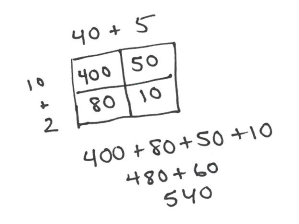 40 + 5
10
+
2
400 50
80 10
400 + 80 + 50 + 10
480 + 60
540